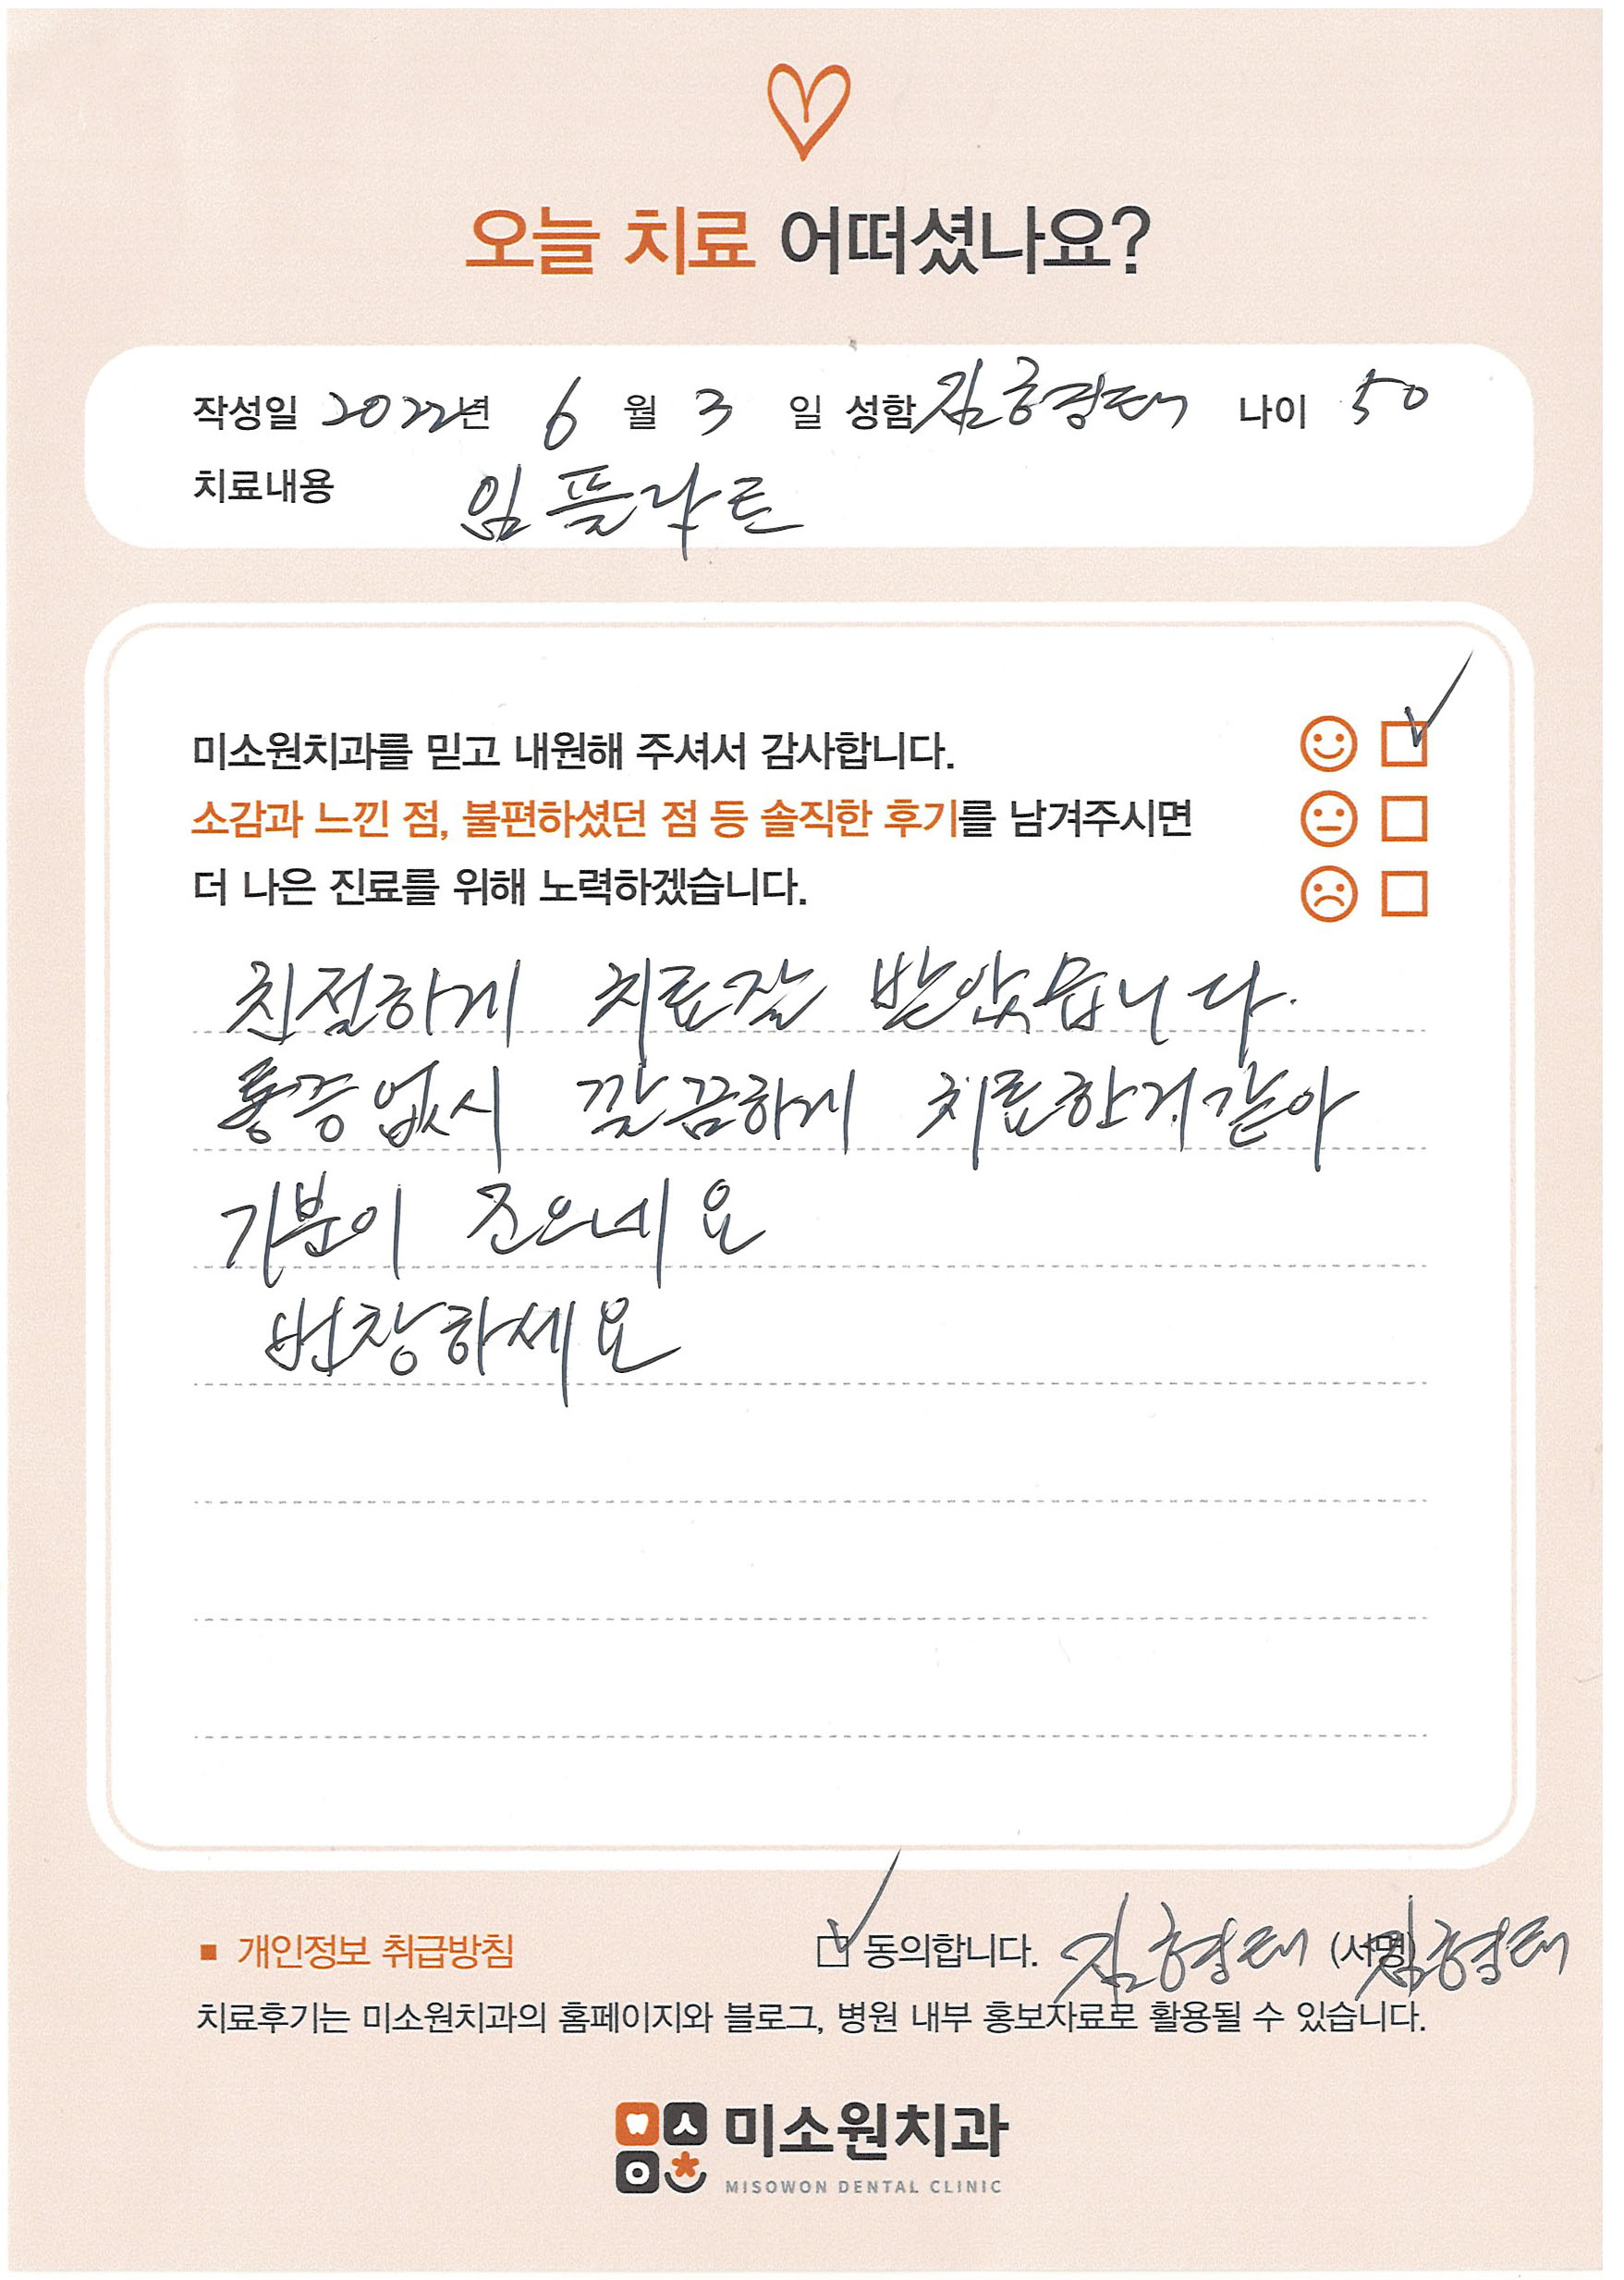 오늘 치료 어떠셨나요?
작성일 2022년 6 월 3 일 성함 김형태 나이 50
치료내용 임플란트
미소원치과를 믿고 내원해 주셔서 감사합니다.
소감과 느낀 점, 불편하셨던 점 등 솔직한 후기를 남겨주시면
더 나은 진료를 위해 노력하겠습니다.
친절하게 치료잘 받았습니다.
통증없시 깔끔하게 치료한거같아
기분이 조으네요
번창하세요
■ 개인정보 취급방침 동의합니다. 김형태 (서명) 김형태
치료후기는 미소원치과의 홈페이지와 블로그, 병원 내부 홍보자료로 활용될 수 있습니다.
미소원치과
MISOWON DENTAL CLINIC